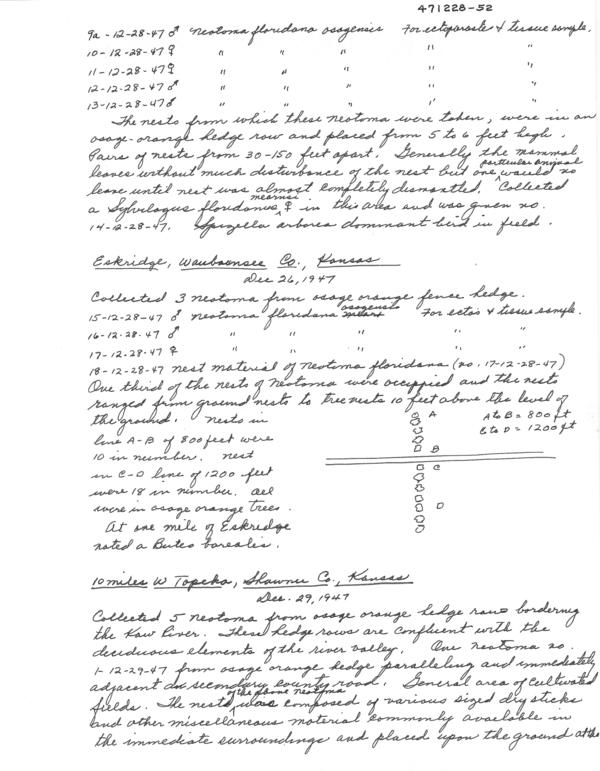 471228-52
9a-12-28-47 ♂ Neotoma floridana osagensis For ectoparasite & tissue sample.
10-12-28-47 ♀ " " " " "
11-12-28-47 ♀ " " " " "
12-12-28-47 ♂ " " " " "
13-12-28-47 ♂ " " " " "
The nests from which these neotoma were taken, were in an
osage-orange hedge row and placed from 5 to 6 feet high.
Pairs of nests from 30-150 feet apart. Generally the mammal
leaves without much disturbance of the nest but one particular animal would no
leave until nest was almost completely dismantled. Collected
a Sylvilagus floridanus mearnsi ♀ in this area and was given no.
14-12-28-47. Spizella arborea dominant bird in field.
Eskridge, Waubaensee Co., Kansas
Dec 26, 1947
Collected 3 neotoma from osage orange fence hedge.
15-12-28-47 ♂ neotoma floridana osagensis For ecto's & tissue sample.
16-12-28-47 ♂ " " " " "
17-12-28-47 ♀ " " " " "
18-12-28-47 nest material of neotoma floridana (no. 17-12-28-47)
One third of the nests of neotoma were occuppied and the nests
ranged from ground nests to tree nests 10 feet above the level of
the ground. Nests in
line A-B of 800 feet were
10 in number. nest
in C-D line of 1200 feet
were 18 in number. all
were in osage orange trees.
At one mile of Eskridge
noted a Buteo borealis.
A
B
C
D
A to B = 800 ft
C to D = 1200 ft
10 miles W Topeka, Shawnee Co., Kansas
Dec. 29, 1947
Collected 5 neotoma from osage orange hedge rows bordering
the Kaw River. These hedge rows are confluent with the
deciduous elements of the river valley. One neotoma no.
1-12-29-47 from osage orange hedge paralleling and immediately
adjacent a secondary county road. General area of cultivated
fields. The nests of the above neotoma was composed of various sized dry sticks
and other miscellaneous material commonly available in
the immediate surroundings and placed upon the ground at the